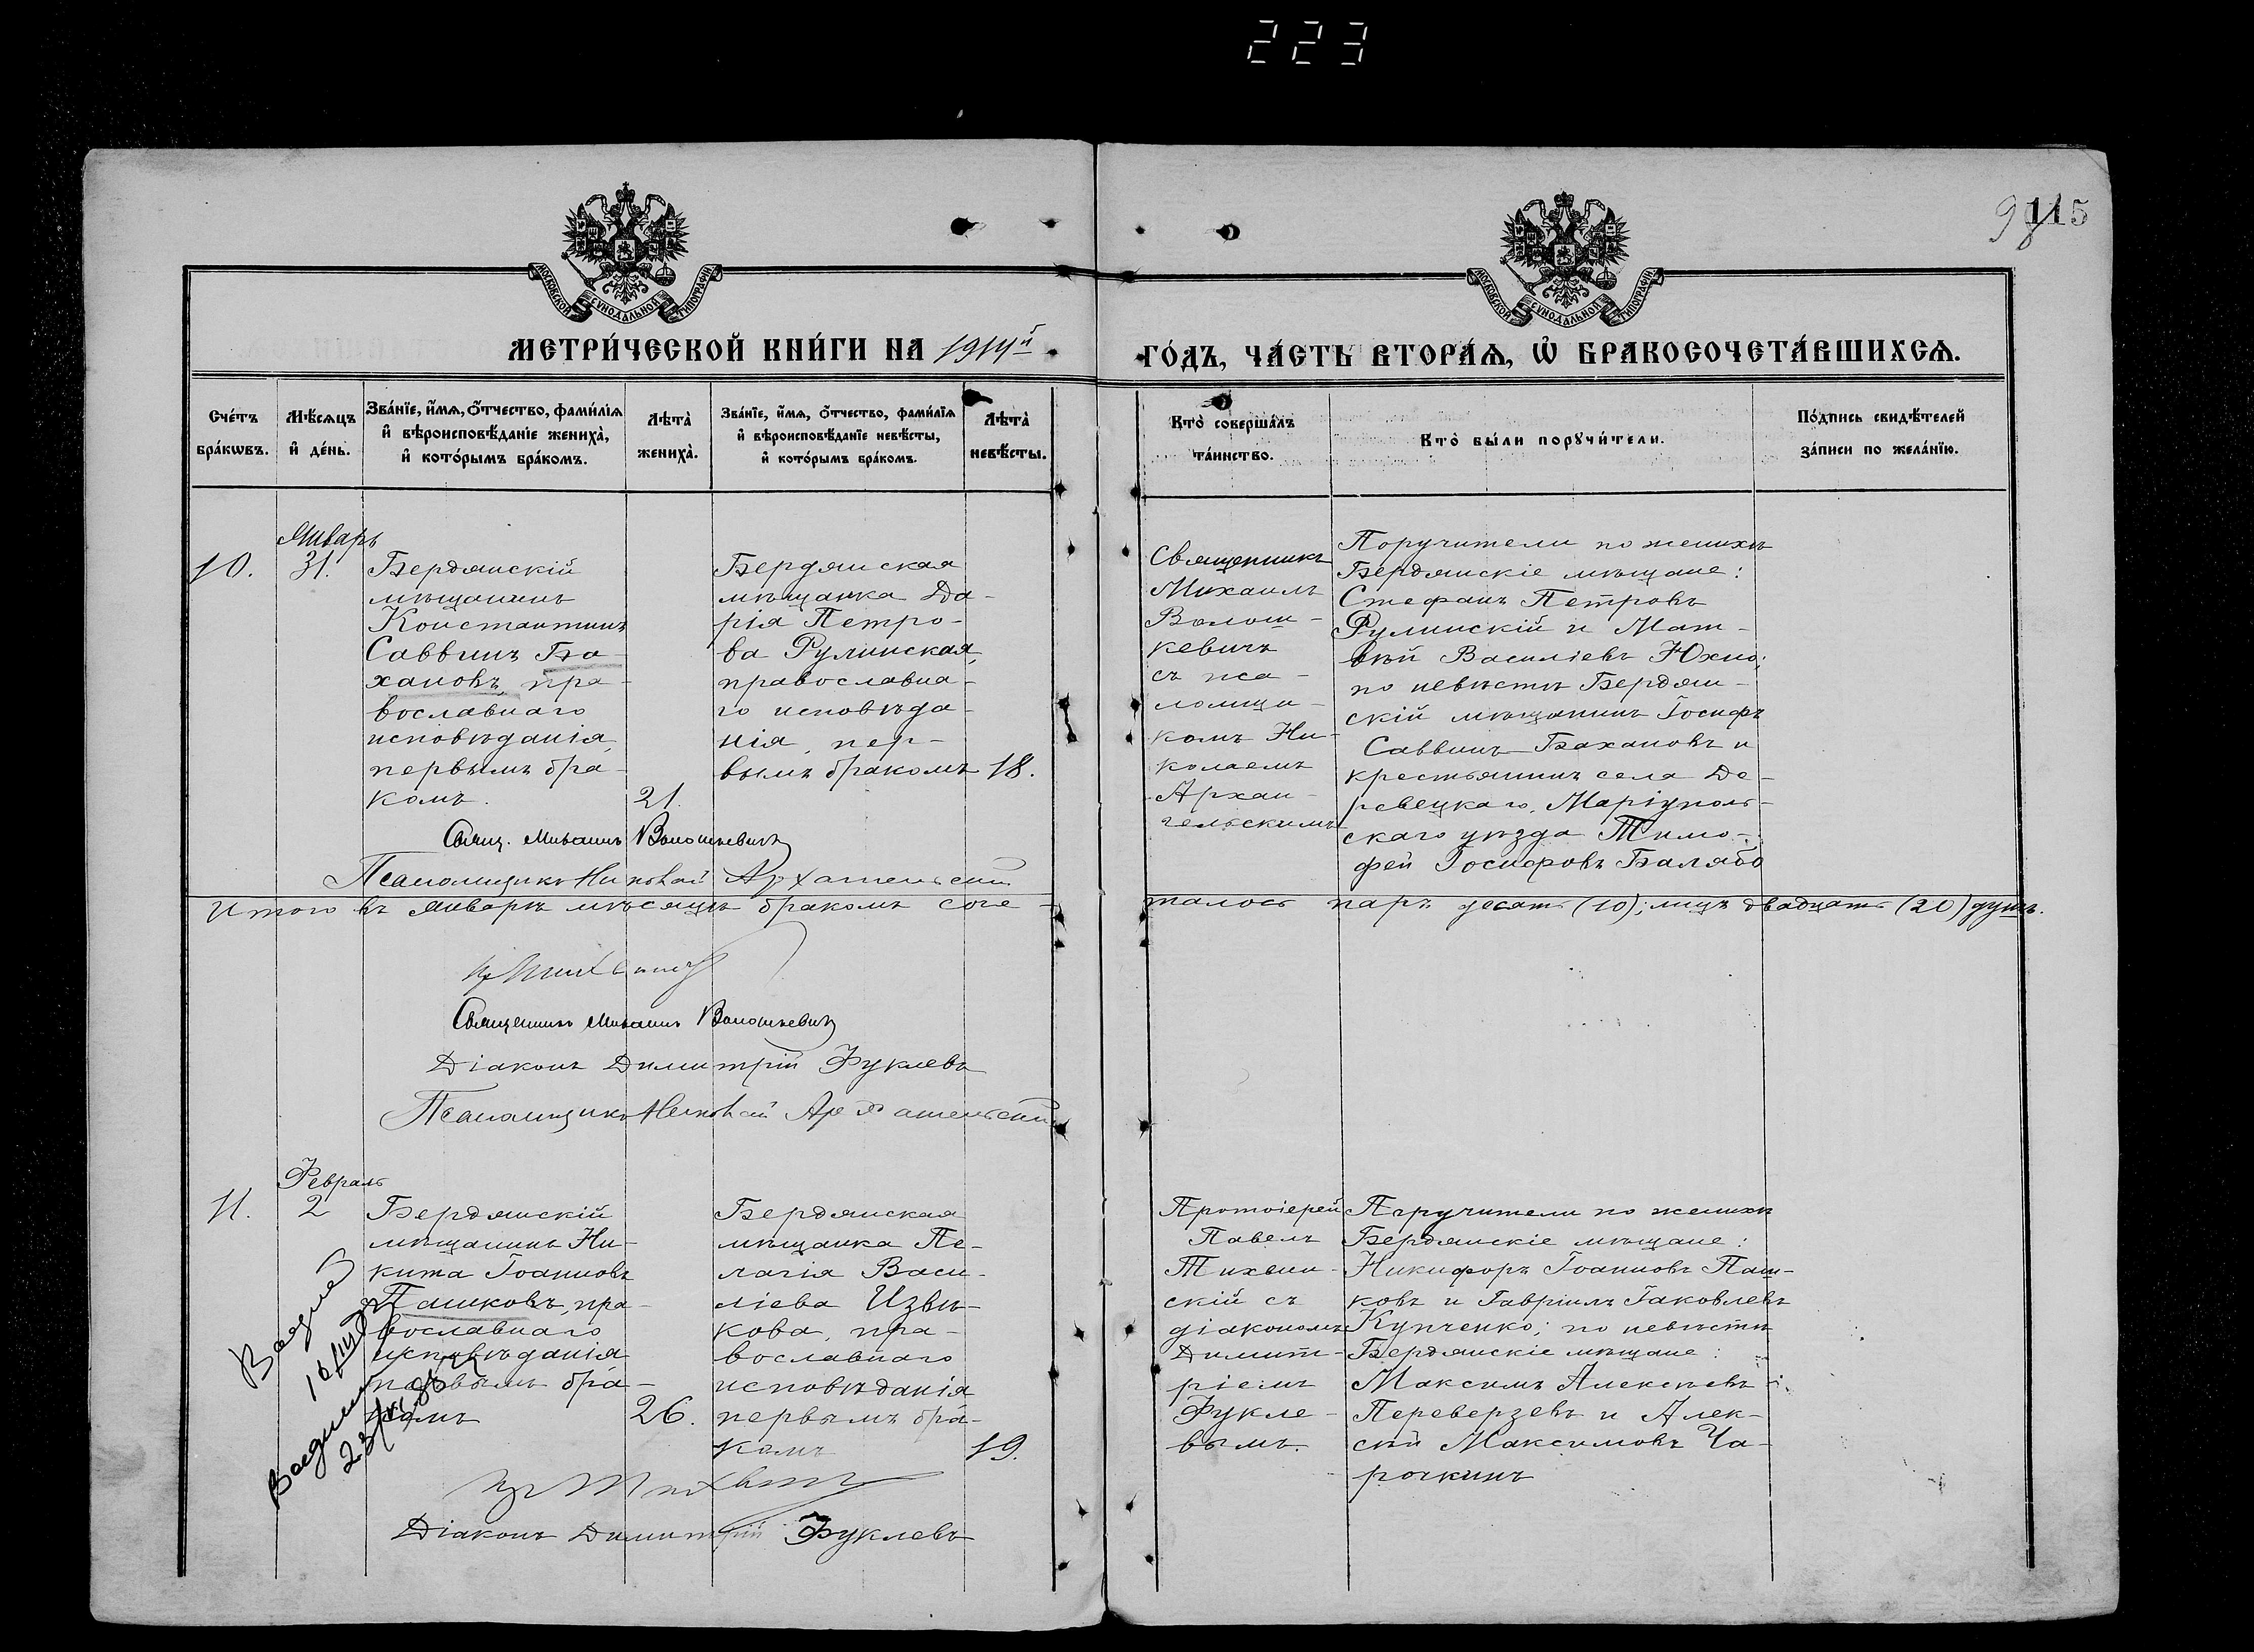 223
115
МОСКОВСКОЙ СѴНОДАЛЬНОЙ ТИПОГРАФІИ
МОСКОВСКОЙ СѴНОДАЛЬНОЙ ТИПОГРАФІИ
МЕТРИ́ЧЕСКОЙ КНИ́ГИ НА 1914й ГО́ДЪ, ЧА́СТЬ ВТОРА́Ѧ, Ѿ БРАКОСОЧЕТА́ВШИХСѦ.
Сче́тъ бра́кѡвъ.
Мѣ́сяцъ и де́нь.
Зва́нїе, и́мѧ, ѻ́тчество, фами́лїѧ
и вѣроисповѣ́данїе жениха̀,
и кото́рымъ бра́комъ.
Лѣта̀ жениха̀.
Зва́нїе, и́мѧ, ѻ́тчество, фами́лїѧ
и вѣроисповѣ́данїе невѣ́сты,
и кото́рымъ бра́комъ.
Лѣта̀ невѣ́сты.
Кто̀ соверша́лъ
та́инство.
Кто̀ бы́ли порꙋчи́тели.
По́дпись свидѣ́телей
за́писи по жела́нїю.
Январь
10.
31.
Бердянскій
мѣщанинъ
Константинъ
Саввинъ Ба-
хановъ, пра-
вославнаго
исповѣданія,
первымъ бра-
комъ.
21.
Бердянская
мѣщанка Да-
рія Петро-
ва Рулинская,
православна-
го исповѣда-
нія, пер-
вымъ бракомъ
18.
Священникъ
Михаилъ
Волош-
кевичъ
съ пса-
ломщи-
комъ Ни-
колаемъ
Архан-
гельскимъ
Поручители по женихѣ
Бердянскіе мѣщане:
Стефанъ Петровъ
Рулинскій и Мат-
вѣй Василіевъ Юхно;
по невѣстѣ Бердян-
скій мѣщанинъ Іосифъ
Саввинъ Бахановъ и
крестьянинъ села
Маріуполь-
скаго уѣзда Тимо-
фей Іосифовъ Балябо
Свящ. Михаилъ Волошкевичъ
Псаломщикъ Николай Архангельскій
Итого въ январѣ мѣсяцѣ бракомъ соче-
талось паръ десять (10); лицъ двадцать (20) душъ.
Священникъ Михаилъ Волошкевичъ
Діаконъ Димитрій Фуклевъ
Псаломщикъ Николай Архангельскій
Февраль
11.
2
Бердянскій
мѣщанинъ Ни-
кита Іоанновъ
Пашковъ, пра-
вославнаго
исповѣданія
первымъ бра-
комъ
26.
Бердянская
мѣщанка Пе-
лагія Васи-
ліева Извѣ-
кова, пра-
вославнаго
исповѣданія
первымъ бра-
комъ
19.
Протоіерей
Павелъ
Тихвин-
скій съ
діакономъ
Димит-
ріемъ
Фукле-
вымъ.
Поручители по женихѣ
Бердянскіе мѣщане:
Никифоръ Іоанновъ Паш-
ковъ и Гавріилъ Іаковлевъ
Купченко; по невѣстѣ
Бердянскіе мѣщане:
Максимъ Алексѣевъ
Переверзевъ и Алек-
сѣй Максимовъ Ча-
рочкинъ
Діаконъ Димитрій Фуклевъ